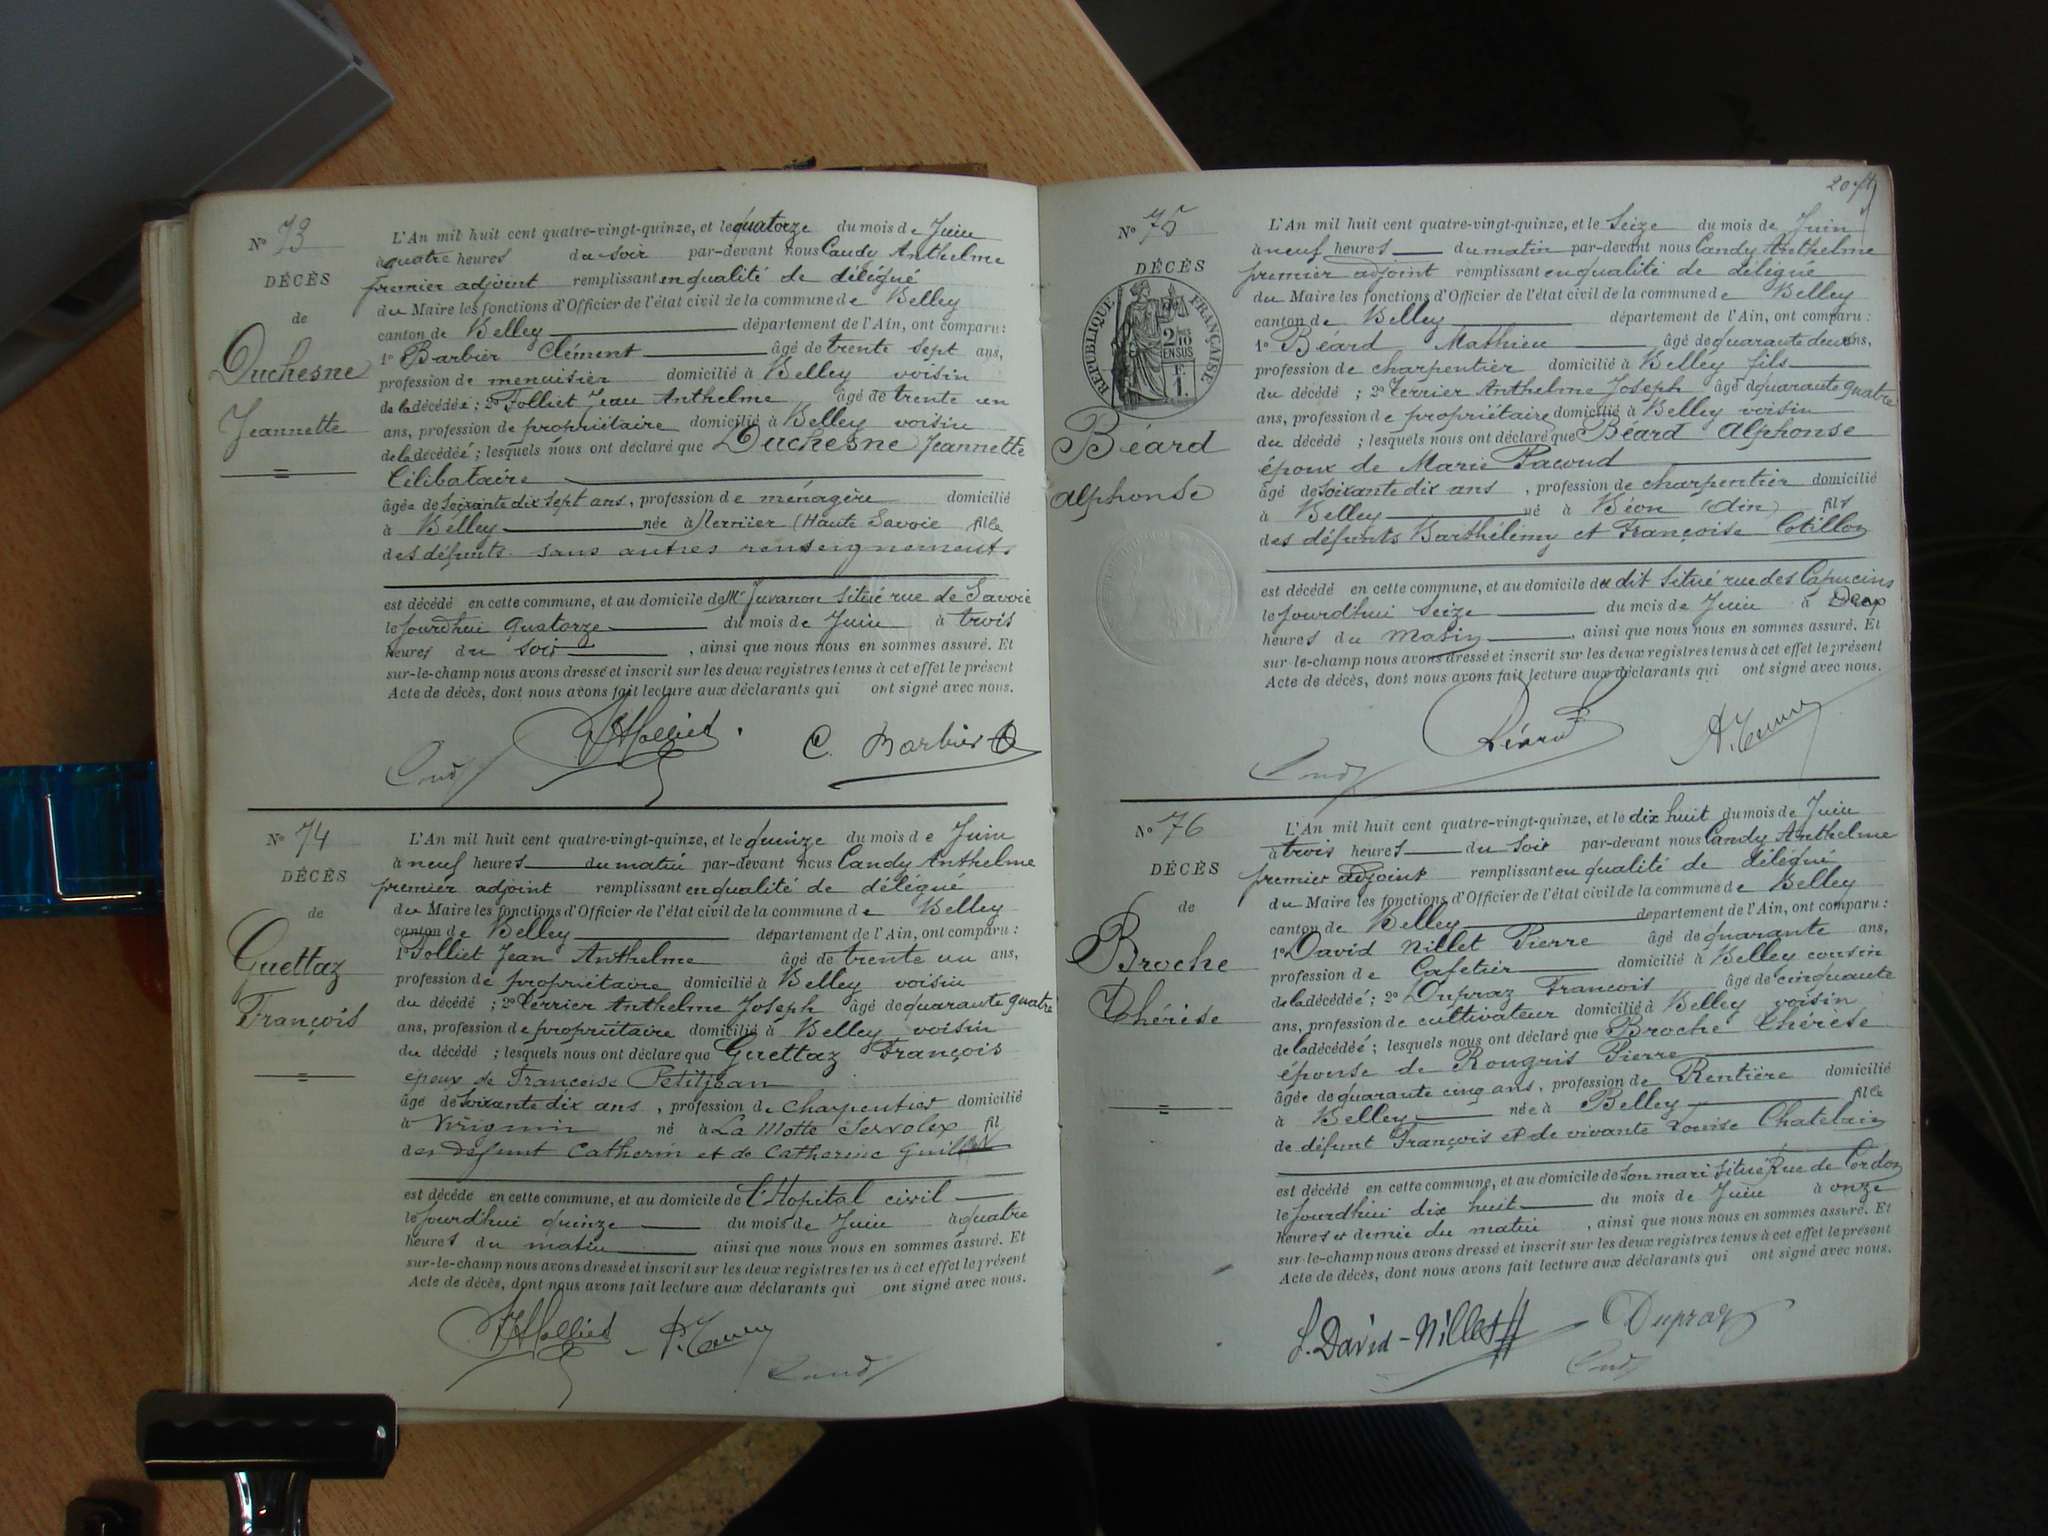 Nº 73
DÉCÈS
de
Duchesne
Jeannette
L'An mil huit cent quatre-vingt-quinze, et le quatorze du mois de Juin
à quatre heures du soir par-devant nous Candy Anthelme
premier adjoint remplissant en qualité de délégué
du Maire les fonctions d'Officier de l'état civil de la commune de Belley
canton de Belley département de l'Ain, ont comparu :
1º Barbier Clément âgé de trente sept ans,
profession de menuisier domicilié à Belley voisin
de la décédée ; 2º Folliet Jean Anthelme âgé de trente un
ans, profession de propriétaire domicilié à Belley voisin
de la décédée ; lesquels nous ont déclaré que Duchesne Jeannette
Célibataire
âgée de soixante dix sept ans, profession de ménagère domicilié
à Belley née à (Haute Savoie fille
des défunts sans autres renseignements
est décédé en cette commune, et au domicile de Mr Juvanon situé rue de Savoie
le jourd'hui quatorze du mois de Juin à trois
heures du soir, ainsi que nous nous en sommes assuré. Et
sur-le-champ nous avons dressé et inscrit sur les deux registres tenus à cet effet le présent
Acte de décès, dont nous avons fait lecture aux déclarants qui ont signé avec nous.
Candy JAFolliet C. Barbier
Nº 74
DÉCÈS
de
Guettaz
François
L'An mil huit cent quatre-vingt-quinze, et le quinze du mois de Juin
à neuf heures du matin par-devant nous Candy Anthelme
premier adjoint remplissant en qualité de délégué
du Maire les fonctions d'Officier de l'état civil de la commune de Belley
canton de Belley département de l'Ain, ont comparu :
1º Folliet Jean Anthelme âgé de trente un ans,
profession de propriétaire domicilié à Belley voisin
du décédé ; 2º Terrier Anthelme Joseph âgé de quarante quatre
ans, profession de propriétaire domicilié à Belley voisin
du décédé ; lesquels nous ont déclaré que Guettaz François
époux de Françoise Petitjean
âgé de soixante dix ans, profession de charpentier domicilié
à Virignin né à La Motte Servolex fil
des défunt Catherin et de Catherine
est décédé en cette commune, et au domicile de l'Hopital civil
le jourd'hui quinze du mois de Juin à quatre
heures du matin ainsi que nous nous en sommes assuré. Et
sur-le-champ nous avons dressé et inscrit sur les deux registres tenus à cet effet le présent
Acte de décès, dont nous avons fait lecture aux déclarants qui ont signé avec nous.
JAFolliet Candy
Nº 75
DÉCÈS
RÉPUBLIQUE FRANÇAISE
2/10 EN SUS
1 F.
Béard
Alphonse
L'An mil huit cent quatre-vingt-quinze, et le Seize du mois de Juin
à neuf heures du matin par-devant nous Candy Anthelme
premier adjoint remplissant en qualité de délégué
du Maire les fonctions d'Officier de l'état civil de la commune de Belley
canton de Belley département de l'Ain, ont comparu :
1º Béard Mathieu âgé de quarante deux ans,
profession de charpentier domicilié à Belley fils
du décédé ; 2º Terrier Anthelme Joseph âgé de quarante quatre
ans, profession de propriétaire domicilié à Belley voisin
du décédé ; lesquels nous ont déclaré que Béard Alphonse
époux de Marie Pacoud
âgé de soixante dix ans, profession de charpentier domicilié
à Belley né à Béon (Ain) fils
des défunts Barthélemy et Françoise Cotillon
est décédé en cette commune, et au domicile du dit situé rue des Capucins
le jourd'hui seize du mois de Juin à Deux
heures du matin, ainsi que nous nous en sommes assuré. Et
sur-le-champ nous avons dressé et inscrit sur les deux registres tenus à cet effet le présent
Acte de décès, dont nous avons fait lecture aux déclarants qui ont signé avec nous.
Candy Béard
Nº 76
DÉCÈS
de
Broche
Thérèse
L'An mil huit cent quatre-vingt-quinze, et le dix huit du mois de Juin
à trois heures du soir par-devant nous Candy Anthelme
premier adjoint remplissant en qualité de délégué
du Maire les fonctions d'Officier de l'état civil de la commune de Belley
canton de Belley département de l'Ain, ont comparu :
1º David Nillet Pierre âgé de quarante ans,
profession de Cafetier domicilié à Belley cousin
de la décédée ; 2º Dupraz François âgé de cinquante
ans, profession de cultivateur domicilié à Belley voisin
de la décédée ; lesquels nous ont déclaré que Broche Thérèse
épouse de Rougris Pierre
âgée de quarante cinq ans, profession de Rentière domicilié
à Belley née à Belley fille
de défunt François et de vivante Louise Chatelain
est décédé en cette commune, et au domicile de son mari situé Rue de Cordon
le jourd'hui dix huit du mois de Juin à onze
heures et demie du matin, ainsi que nous nous en sommes assuré. Et
sur-le-champ nous avons dressé et inscrit sur les deux registres tenus à cet effet le présent
Acte de décès, dont nous avons fait lecture aux déclarants qui ont signé avec nous.
David-Nillet Dupraz
Candy